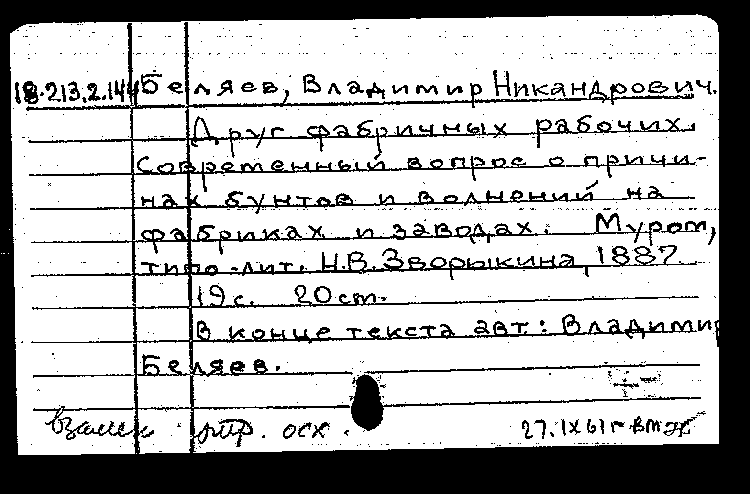 18.213.2.144 Беляев, Владимир Никандрович.
Друг фабричных рабочих.
Современный вопрос о причи-
нах бунтов и волнений на
фабриках и заводах. Муром,
типо-лит. Н.В.Зворыкина, 1887.
19 с. 20 cm.
В конце текста авт: Владимир
Беляев.
взамен осх.
27.IX 61 г